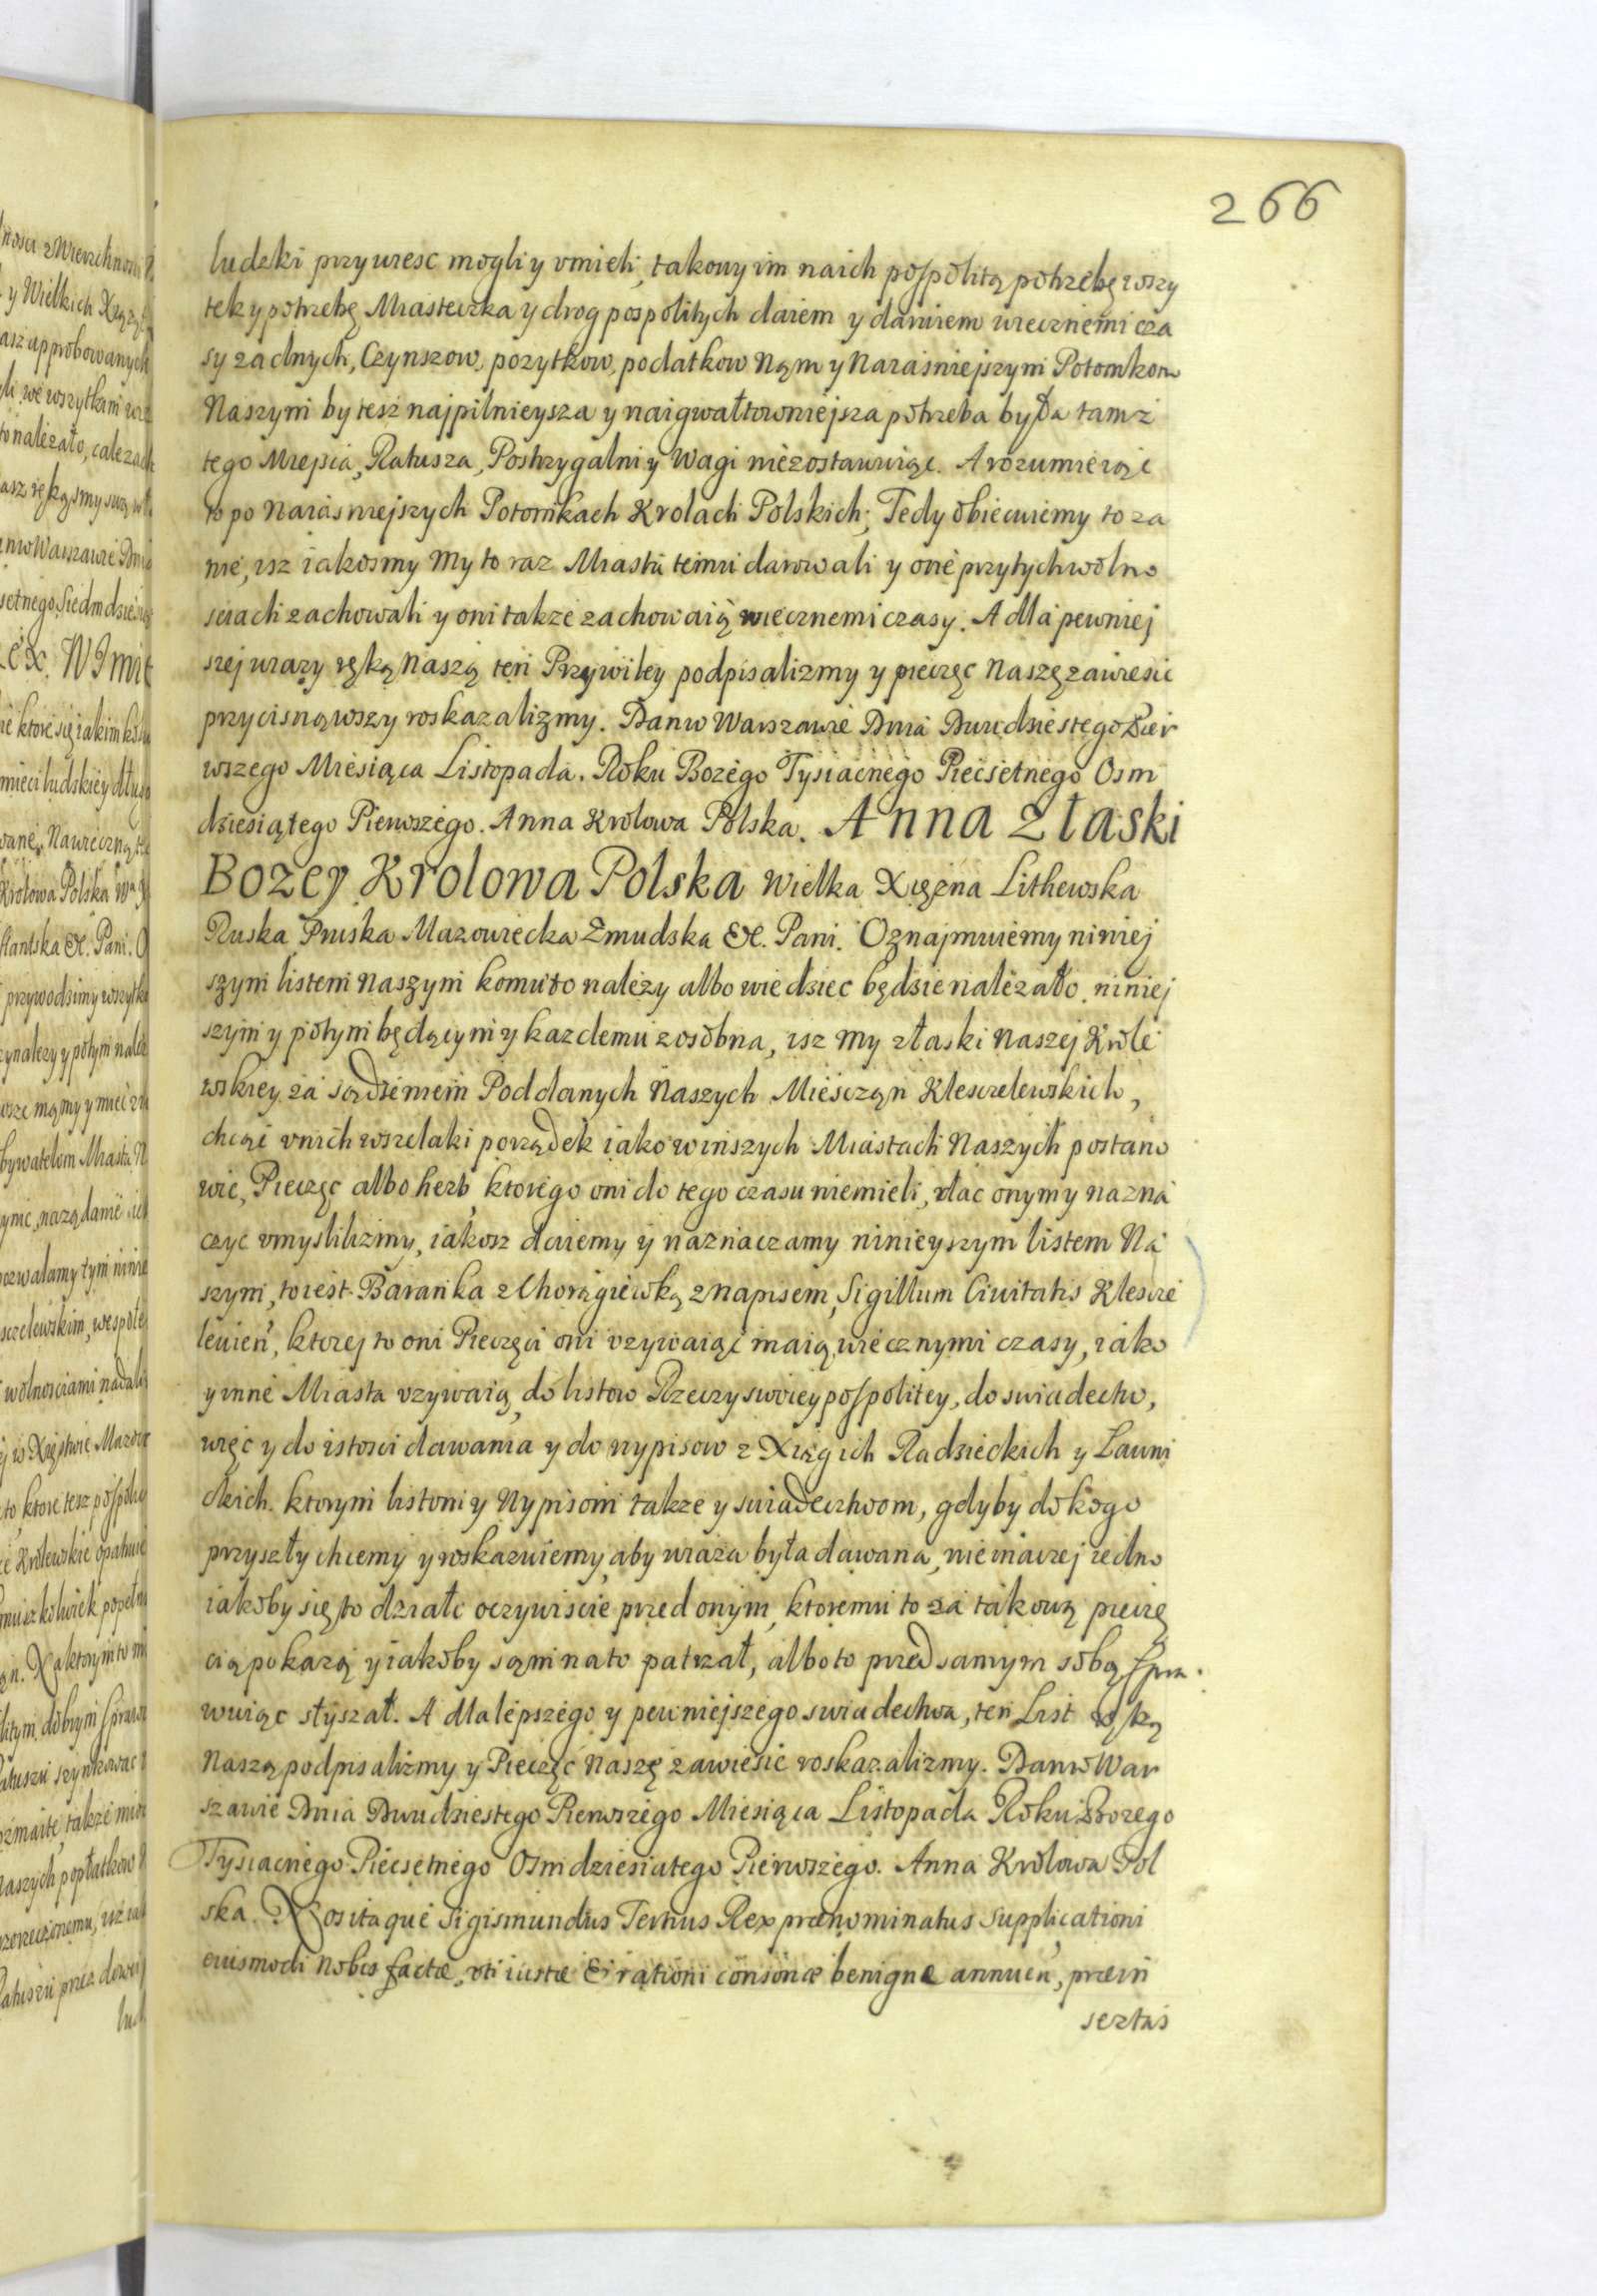 266
ludzki przywiesc mogli y vmieli, takowy im na ich pospolitą potrzebę wszy
tek y potrzebę Miasteczka y drog pospolitych daiem y daruiem wiecznemi cza
sy zadnych, Czynszow, pozytkow, podatkow Nąm y Naiasniejszym Potomkom
Naszym by tesz najpilnieysza y naigwałtowniejsza potrzeba była tam z
tego Miejsca, Ratusza, Postrzygalni y Wagi niezostawuiąc. A rozumieiąc
to po Naiasniejszych Potomkach Krolach Polskich; Tedy obiecuiemy to za
nie, isz iakosmy My to raz Miastu temu darowali y one przytych wolno
sciach zachowali y oni takze zachowaią wiecznemi czasy. A dla pewniej
szej wiary ręką Naszą ten Przywiley podpisalizmy y pieczęc Naszę zawiesic
przycisnąwszy roskazalizmy. Dan w Warszawie Dnia Dwudziestego Pier
wszego Miesiąca Listopada. Roku Bozego Tysiacnego Piecsetnego Osm
dziesiątego Pierwszego. Anna Krolowa Polska. Anna Złaski
Bozey Krolowa Polska Wielka Xiężna Lithewska
Ruska Pruska Mazowiecka Zmudska &c. Pani. Oznajmuiemy niniej
szym listem Naszym komu to należy albo wiedziec będzie należało, niniej
szym y potym będącym y kazdemu z osobna, isz My złaski Naszej Krole
wskiey za sądzeniem Poddanych Naszych Mieszcząn Kleszczelewskich,
chcąc v nich wszelaki porządek iako w inszych Miastach Naszych postano
wic, Pieczęc albo herb, ktorego oni do tego czasu niemieli, dac onym y nazna
czyc vmyslilizmy, iakosz daiemy y naznaczamy ninieyszym listem Na
szym, to iest. Baranka z Chorągiewką z napisem, Sigillum Ciuitatis Kleszcze
leuien, ktorej to oni Pieczęci oni vzywaiąc maią wiecznymi czasy, iako
y inne Miasta vzywaią, do listow Rzeczy swoiey pospolitey, do swiadectw,
więc y do istosci dawania y do wypisow z Xiąg ich Radzieckich y Ławni
ckich. ktorym listom y Wypisom takze y swiadectwom, gdyby do kogo
przyszły chcemy y roskazuiemy, aby wiara była dawana, nie inaczej iedno
iakoby się to działo oczywiscie przed onym, ktoremu to za takową pieczę
cią pokazą y iakoby sąm na to patrzał, albo to przed samym sobą spra
wuiąc słyszał. A dla lepszego y pewniejszego swiadectwa, ten List ręką
Naszą podpisalizmy y Pieczęc Naszę zawiesic roskazalizmy. Dan w War
szawie Dnia Dwudziestego Pierwszego Miesiąca Listopada Roku Bozego
Tysiacnego Piecsetnego Osmdziesiatego Pierwszego. Anna Krolowa Pol
ska. Nos itaque Sigismundus Tertius Rex prænominatus supplicationi
euismodi Nobis factæ, vti iustæ & rationi consonæ benigne annuen, præin
sertas